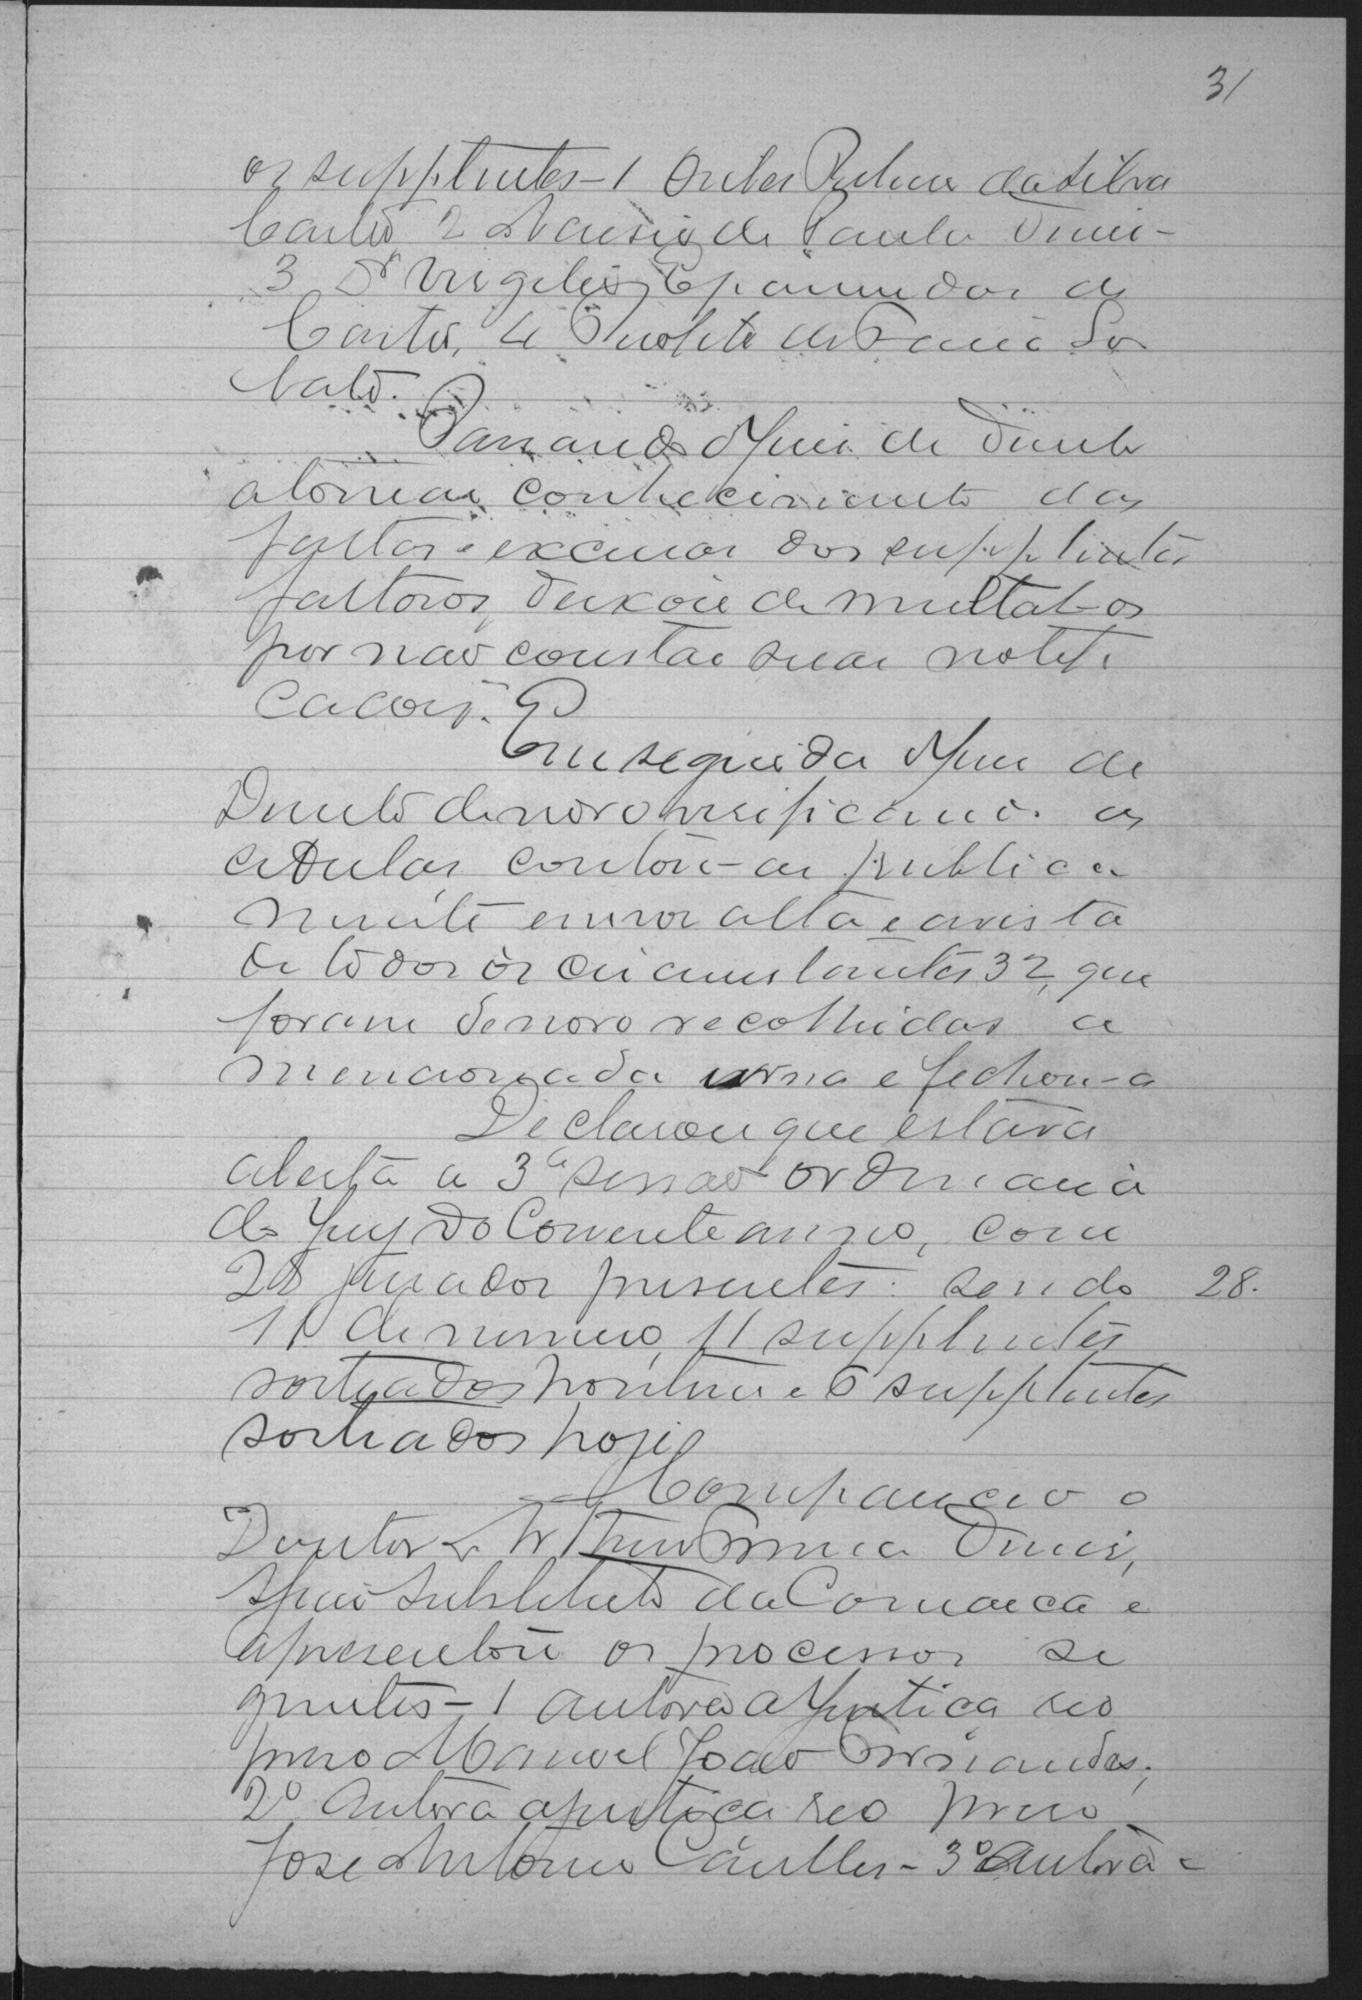 31
os supplentes - 1 da Silva
Castro, 2 de Paula Diniz -
3 Dr Virgilio Epaminondas de
Castro, 4 de Faria Lo
bato.
Passando o Juiz de Direito
a tomar conhecimento das
faltas e excusas dos supplentes
faltosos, deixou de multal-os
por não constar suas notifi
cacões.
Em seguida o Juiz de
Direito de novo verificando as
cedulas, contou-as publica
mente em voz alta e a vista
de todos os circumstantes 32, que
foram de novo recolhidas a
mencionada urna e fechou-a
Declarou que estava
aberta a 3ª sessao ordinaria
do Jury do Corrente anno, com
28 jurados presentes: sendo 28.
11 de numero, 11 supplentes
sorteados hontem e 6 supplentes
sorteados hoje
Compareceu o
Doutor Arthur Diniz,
Juiz Substituto da Comarca e
apresentou os processos se
guintes - 1 autora a Justiça reo
preso Manoel João Fernandes;
2º Autora a justiça reo preso
Jose Antonio - 3º autora a